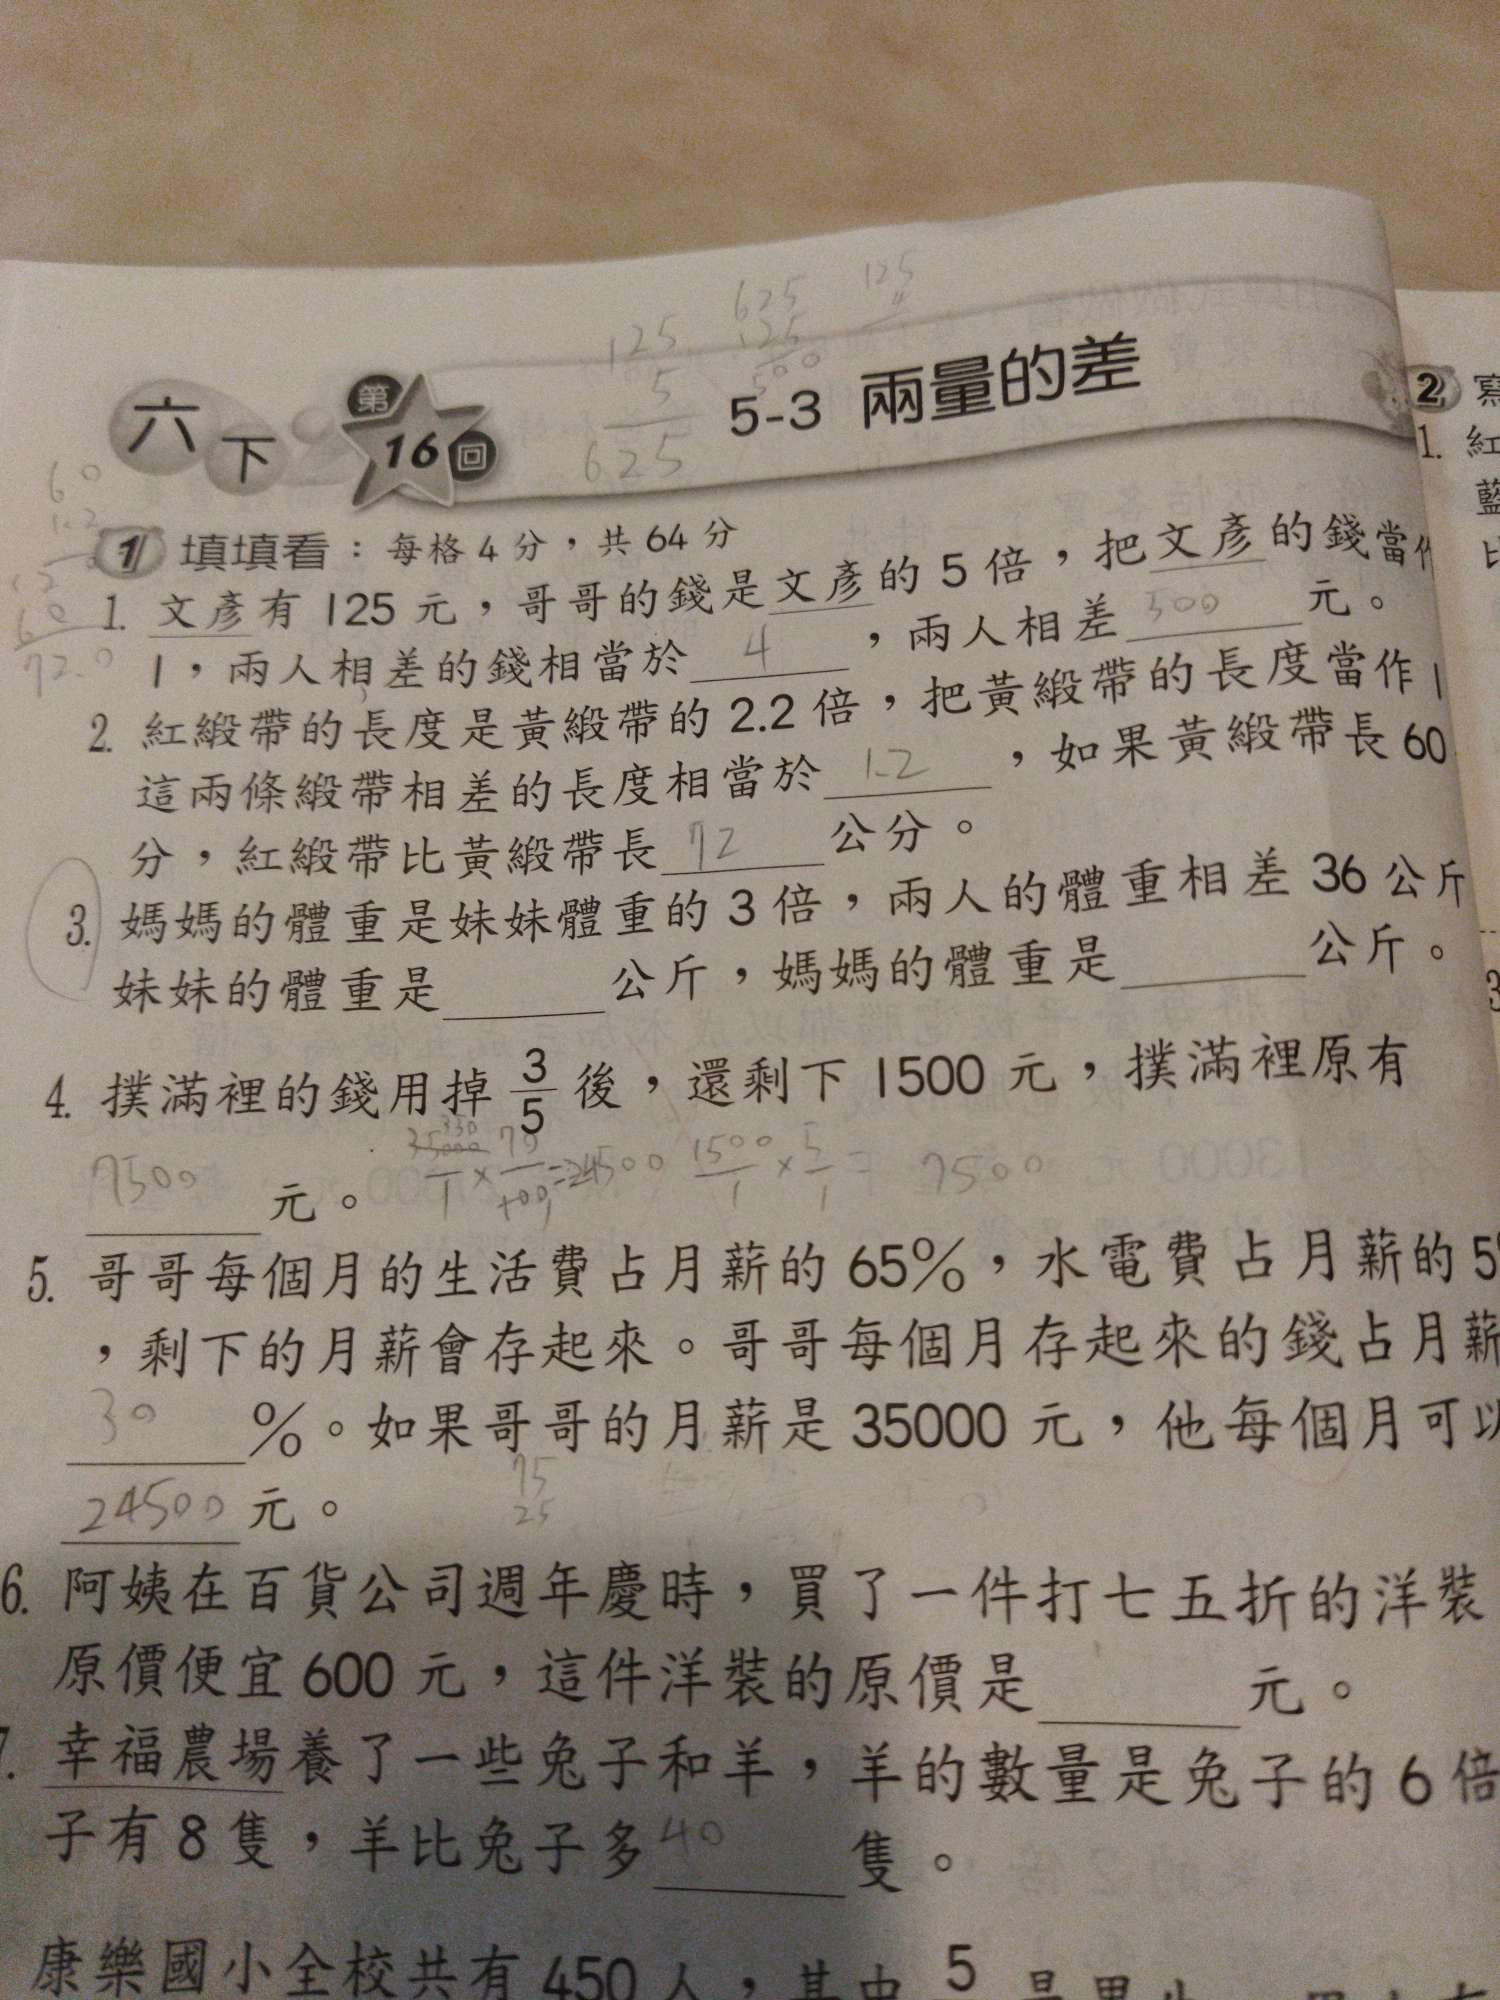 125
5
625
625
125
500
125
六下 第16回 5-3 兩量的差
60
1.2
60
72.0
1 填填看：每格4分，共64分
1. 文彥有125元，哥哥的錢是文彥的5倍，把文彥的錢當作
1，兩人相差的錢相當於 4 ，兩人相差 500 元。
2. 紅緞帶的長度是黃緞帶的2.2倍，把黃緞帶的長度當作1
這兩條緞帶相差的長度相當於 1.2 ，如果黃緞帶長60
分，紅緞帶比黃緞帶長 72 公分。
3. 媽媽的體重是妹妹體重的3倍，兩人的體重相差36公斤
妹妹的體重是____公斤，媽媽的體重是____公斤。
4. 撲滿裡的錢用掉3/5後，還剩下1500元，撲滿裡原有
7500 元。
1500/1×5/1= 7500
5. 哥哥每個月的生活費占月薪的65%，水電費占月薪的5
，剩下的月薪會存起來。哥哥每個月存起來的錢占月薪
30 %。如果哥哥的月薪是35000元，他每個月可以
24500 元。
75
25
6. 阿姨在百貨公司週年慶時，買了一件打七五折的洋裝
原價便宜600元，這件洋裝的原價是____元。
7. 幸福農場養了一些兔子和羊，羊的數量是兔子的6倍
子有8隻，羊比兔子多 40 隻。
康樂國小全校共有450人，其中5
2
1. 紅
藍
比
3